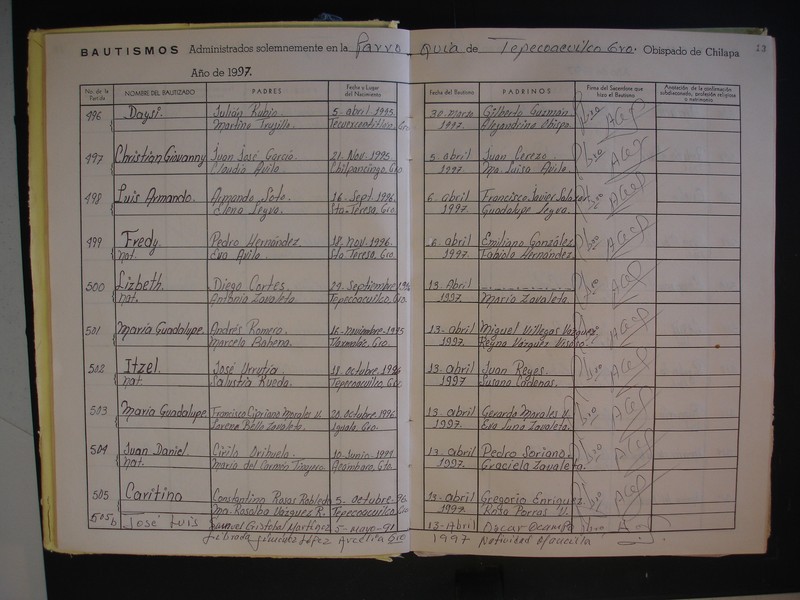 BAUTISMOS Administrados solemnemente en la Parro quia de Tepecoacuilco Gro. Obispado de Chilapa. 13
Año de 1997.
No. de la Partida NOMBRE DEL BAUTIZADO PADRES Fecha y Lugar del Nacimiento Fecha del Bautismo PADRINOS Firma del Sacerdote que hizo el Bautismo Anotación de la confirmación subdiaconado, profesión religiosa o matrimonio
496 Daysi. Julián Rubio. 5-abril 1995. 30-marzo Gilberto Guzmán. Pbro ACeP
Martina Trujillo. Gro 1997. Alejandrina Obispo.
497 Christian Giovanny Juan José García. 21. Nov. 1995 5. abril Juan Cerezo. Pbro ACeP
Claudia Avila. Chilpancingo. Gro 1997. Ma. Luisa Avila.
498 Luis Armando. Armando Soto. 16. Sept. 1996. 6. abril Francisco Javier Salazar. Pbro ACeP
Elena Leyva. Sta. Teresa. Gro. 1997. Guadalupe Leyva.
499 Fredy. Pedro Hernández. 18. nov. 1996. 6. abril Emiliano González. Pbro ACeP
nat. Eva Avila. Sta. Teresa. Gro. 1997. Fabiola Hernández.
500 Lizbeth. Diego Cortes. 29. Septiembre 1996 13. Abril Pbro ACeP
nat. Antonia Zavaleta. Tepecoacuilco. Gro. 1997. María Zavaleta.
501 María Guadalupe. Andrés Romero. 16-noviembre-1995 13-abril Miguel Villegas Vázquez. Pbro ACeP
Marcela Bahena. Tlaxmalac. Gro. 1997. Reyna Vázquez
502 Itzel. José Urrutia. 11. octubre. 1996 13. abril Juan Reyes. Pbro ACeP
nat. Salustia Rueda. Tepecoacuilco. Gro 1997 Susana Cárdenas.
503 María Guadalupe. Francisco Cipriano Morales V. 20. octubre 1996. 13. abril Gerardo Morales V. Pbro ACeP
Lorena Bello Zavaleta. Iguala. Gro. 1997. Eva Luna Zavaleta.
504 Juan Daniel. Cirilo Orihuela. 10. Junio. 1991. 13. abril Pedro Soriano. Pbro ACeP
nat. María del Carmen Acámbaro. Gto. 1997. Graciela Zavaleta.
505 Caritino Constantino Rosas Robledo 5. Octubre. 96. 13. abril Gregorio Enriquez. Pbro ACeP
Ma. Rosalba Vázquez R. Tepecoacuilco. Gro 1997. Rosa Porras V.
505 b José Luis Manuel Cristobal Martínez 5-mayo-91. 13-Abril Oscar Ocampo Pbro
Librada López Arcelia Gro 1997 Natividad Mancilla